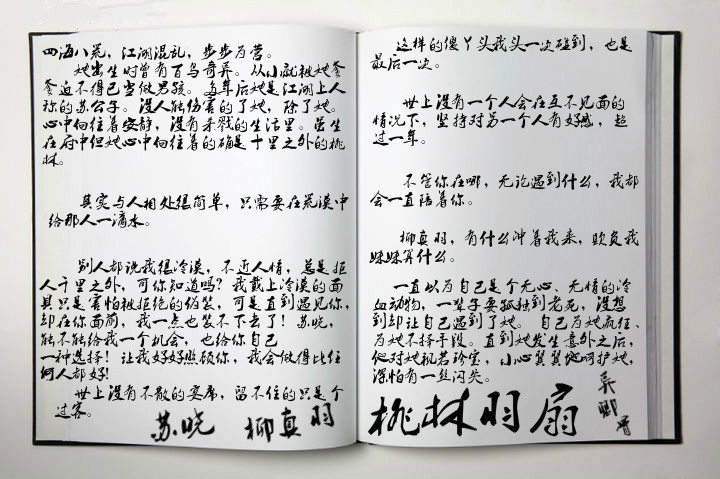 四海八荒，江湖混乱，步步为营。
她出生时曾有百鸟奇异。从小就被她爹
爹迫不得已当做男孩。多年后她是江湖上人
称的苏公子。没人能伤害的了她，除了她。
心中向往着安静，没有杀戮的生活里。虽生
在府中但她心中向往着的确是十里之外的桃
林。
其实与人相处很简单，只需要在荒漠中
给那人一滴水。
别人都说我很冷漠，不近人情，总是拒
人千里之外，可你知道吗？我戴上冷漠的面
具只是害怕被拒绝的伪装，可是直到遇见你，
却在你面前，我一点也装不下去了！苏晓，
能不能给我一个机会，也给你自己
一种选择！让我好好照顾你，我会做得比任
何人都好！
世上没有不散的宴席，留不住的只是个
过客。
苏晓 柳真羽
这样的傻丫头我头一次碰到，也是
最后一次。
世上没有一个人会在互不见面的
情况下，坚持对另一个人有好感，超
过一年。
不管你在哪，无论遇到什么，我都
会一直陪着你。
柳真羽，有什么冲着我来，欺负我
妹妹算什么。
一直以为自己是个无心、无情的冷
血动物，一辈子要孤独到老死，没想
到却让自己遇到了她。自己为她疯狂、
为她不择手段。直到她发生意外之后，
他对她视若珍宝，小心翼翼地呵护她，
深怕有一丝闪失。
桃林羽扇